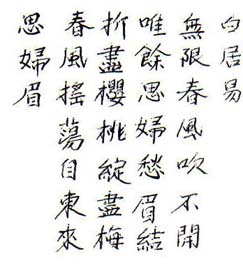 思婦眉
春風搖蕩自東來
折盡櫻桃綻盡梅
唯餘思婦愁眉結
無限春風吹不開
白居易